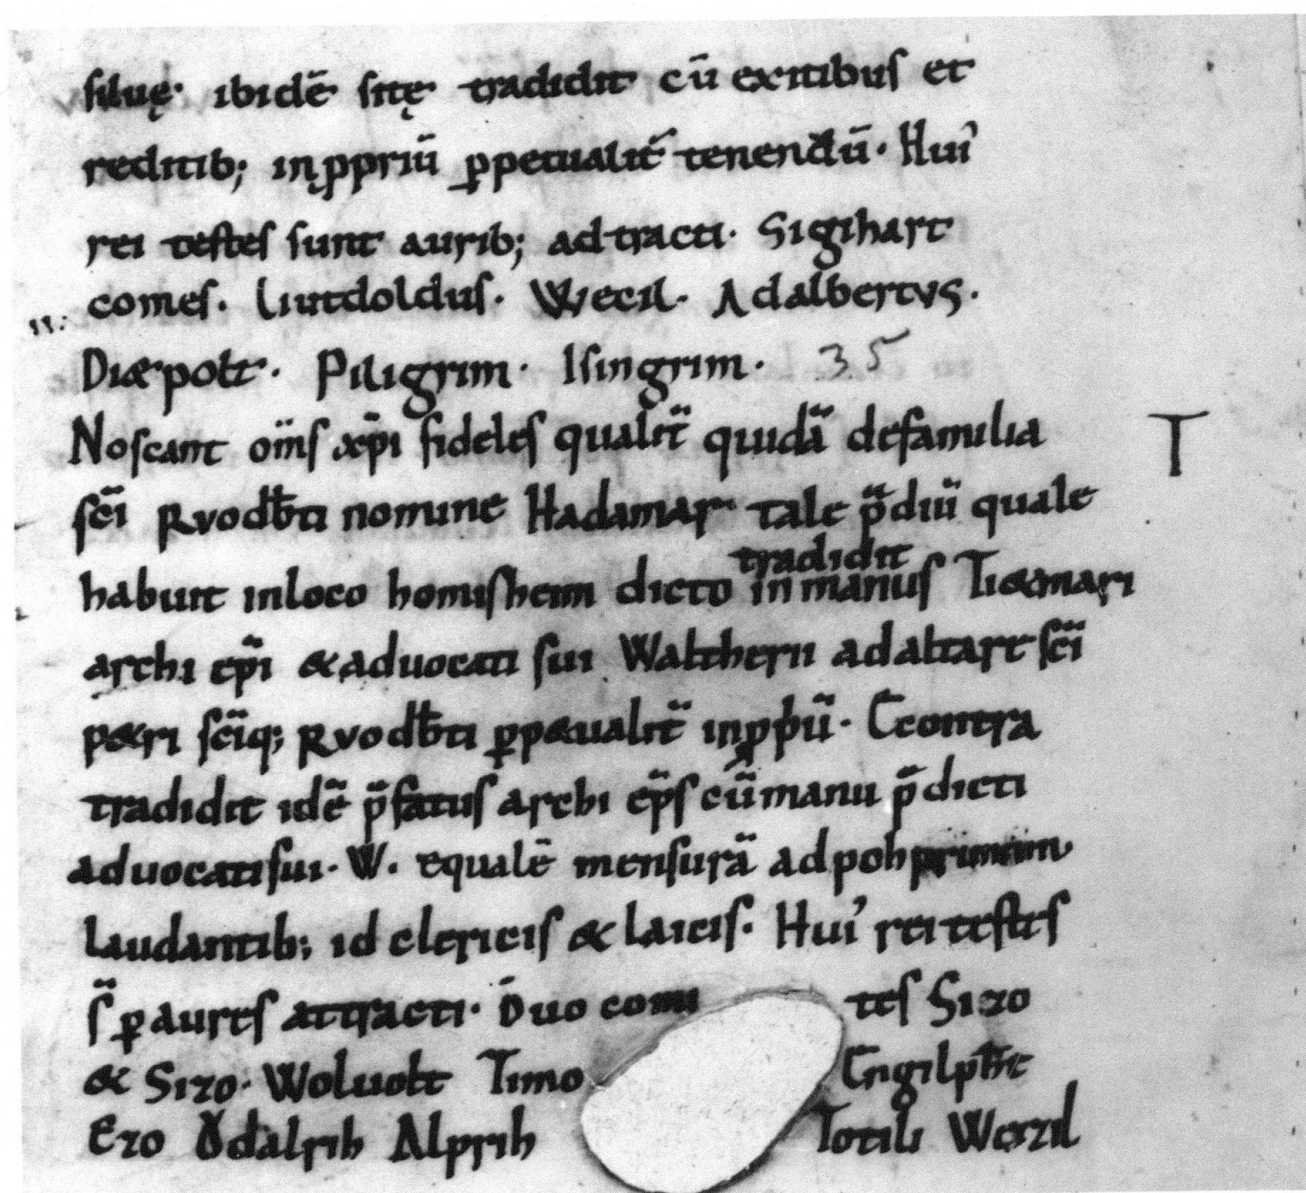 siluę· ibidē sitę tradidit cū exitibus et
reditib; inppriū ppetualit̄ tenendū· Hui᾽
rei testes sunt aurib; adtracti· Sigihart
comes· Liutdoldus· Wecil· Adalbertus·
Dietpolt· Piligrim· Isingrim· 35
Noscant om̄s xp̄i fideles qualit̄ quidā defamilia
T
sc̄i Rvodb̄ti nomine Hadamar· tale p̄diū quale
tradidit
habuit inloco homisheim dicto in manus Tietmari
archi ep̄i &aduocati sui Waltherii adaltare sc̄i
p&ri sc̄iq; Rvodb̄ti pp&ualit̄ inppriū· Econtra
tradidit idē p̄fatus archi ep̄s cū manu p̄dicti
aduocatisui· W· equalē mensurā adpoh
laudantib; id clericis & laicis· Hui᾽ rei testes
s̄ paures attracti· Duo comi tes Sizo
& Sizo· Woluolt Timo Engilpr̄ht
Ezo Ŏdalrih Alprih Totili Wezil